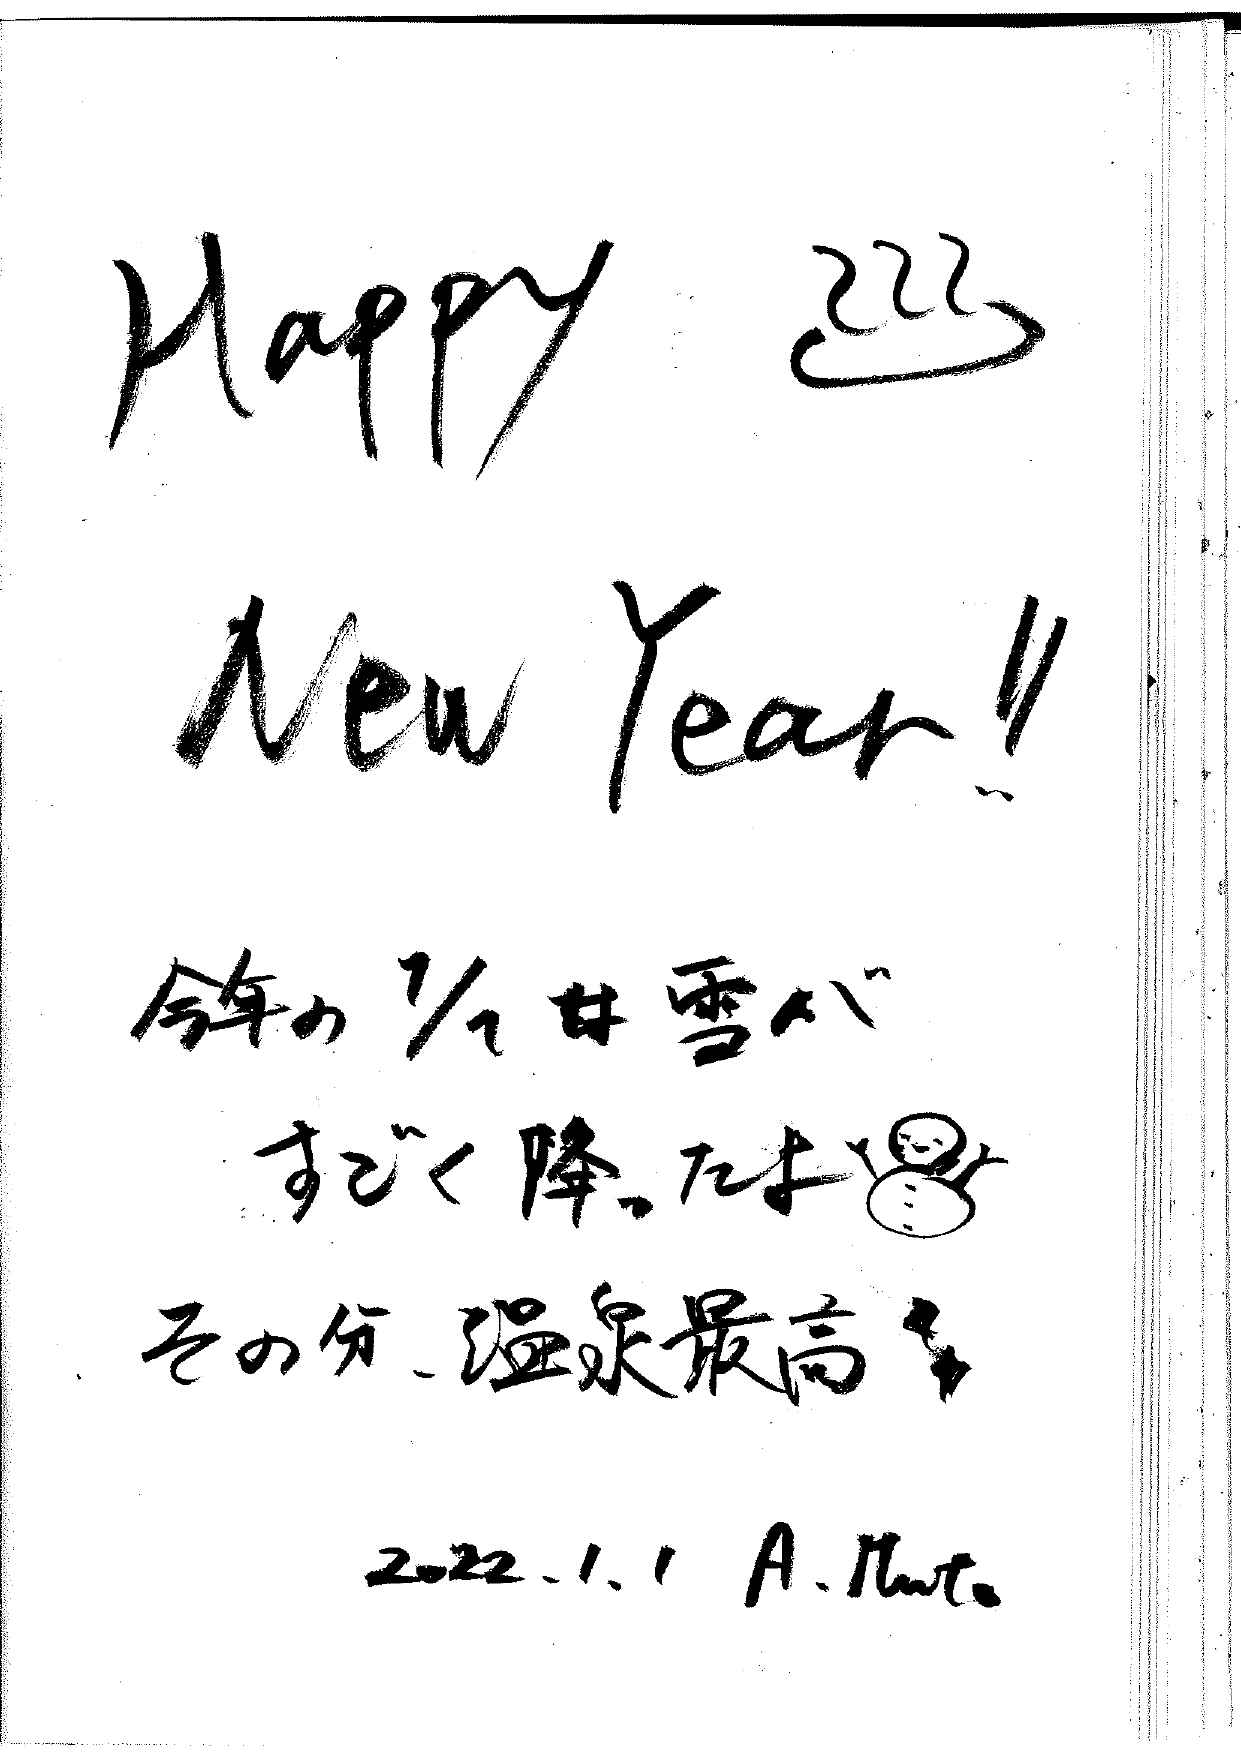 Happy
New Year!!
今年の1/1は雪が
すごく降ったよ
その分、温泉最高!
2022.1.1 A.Muto